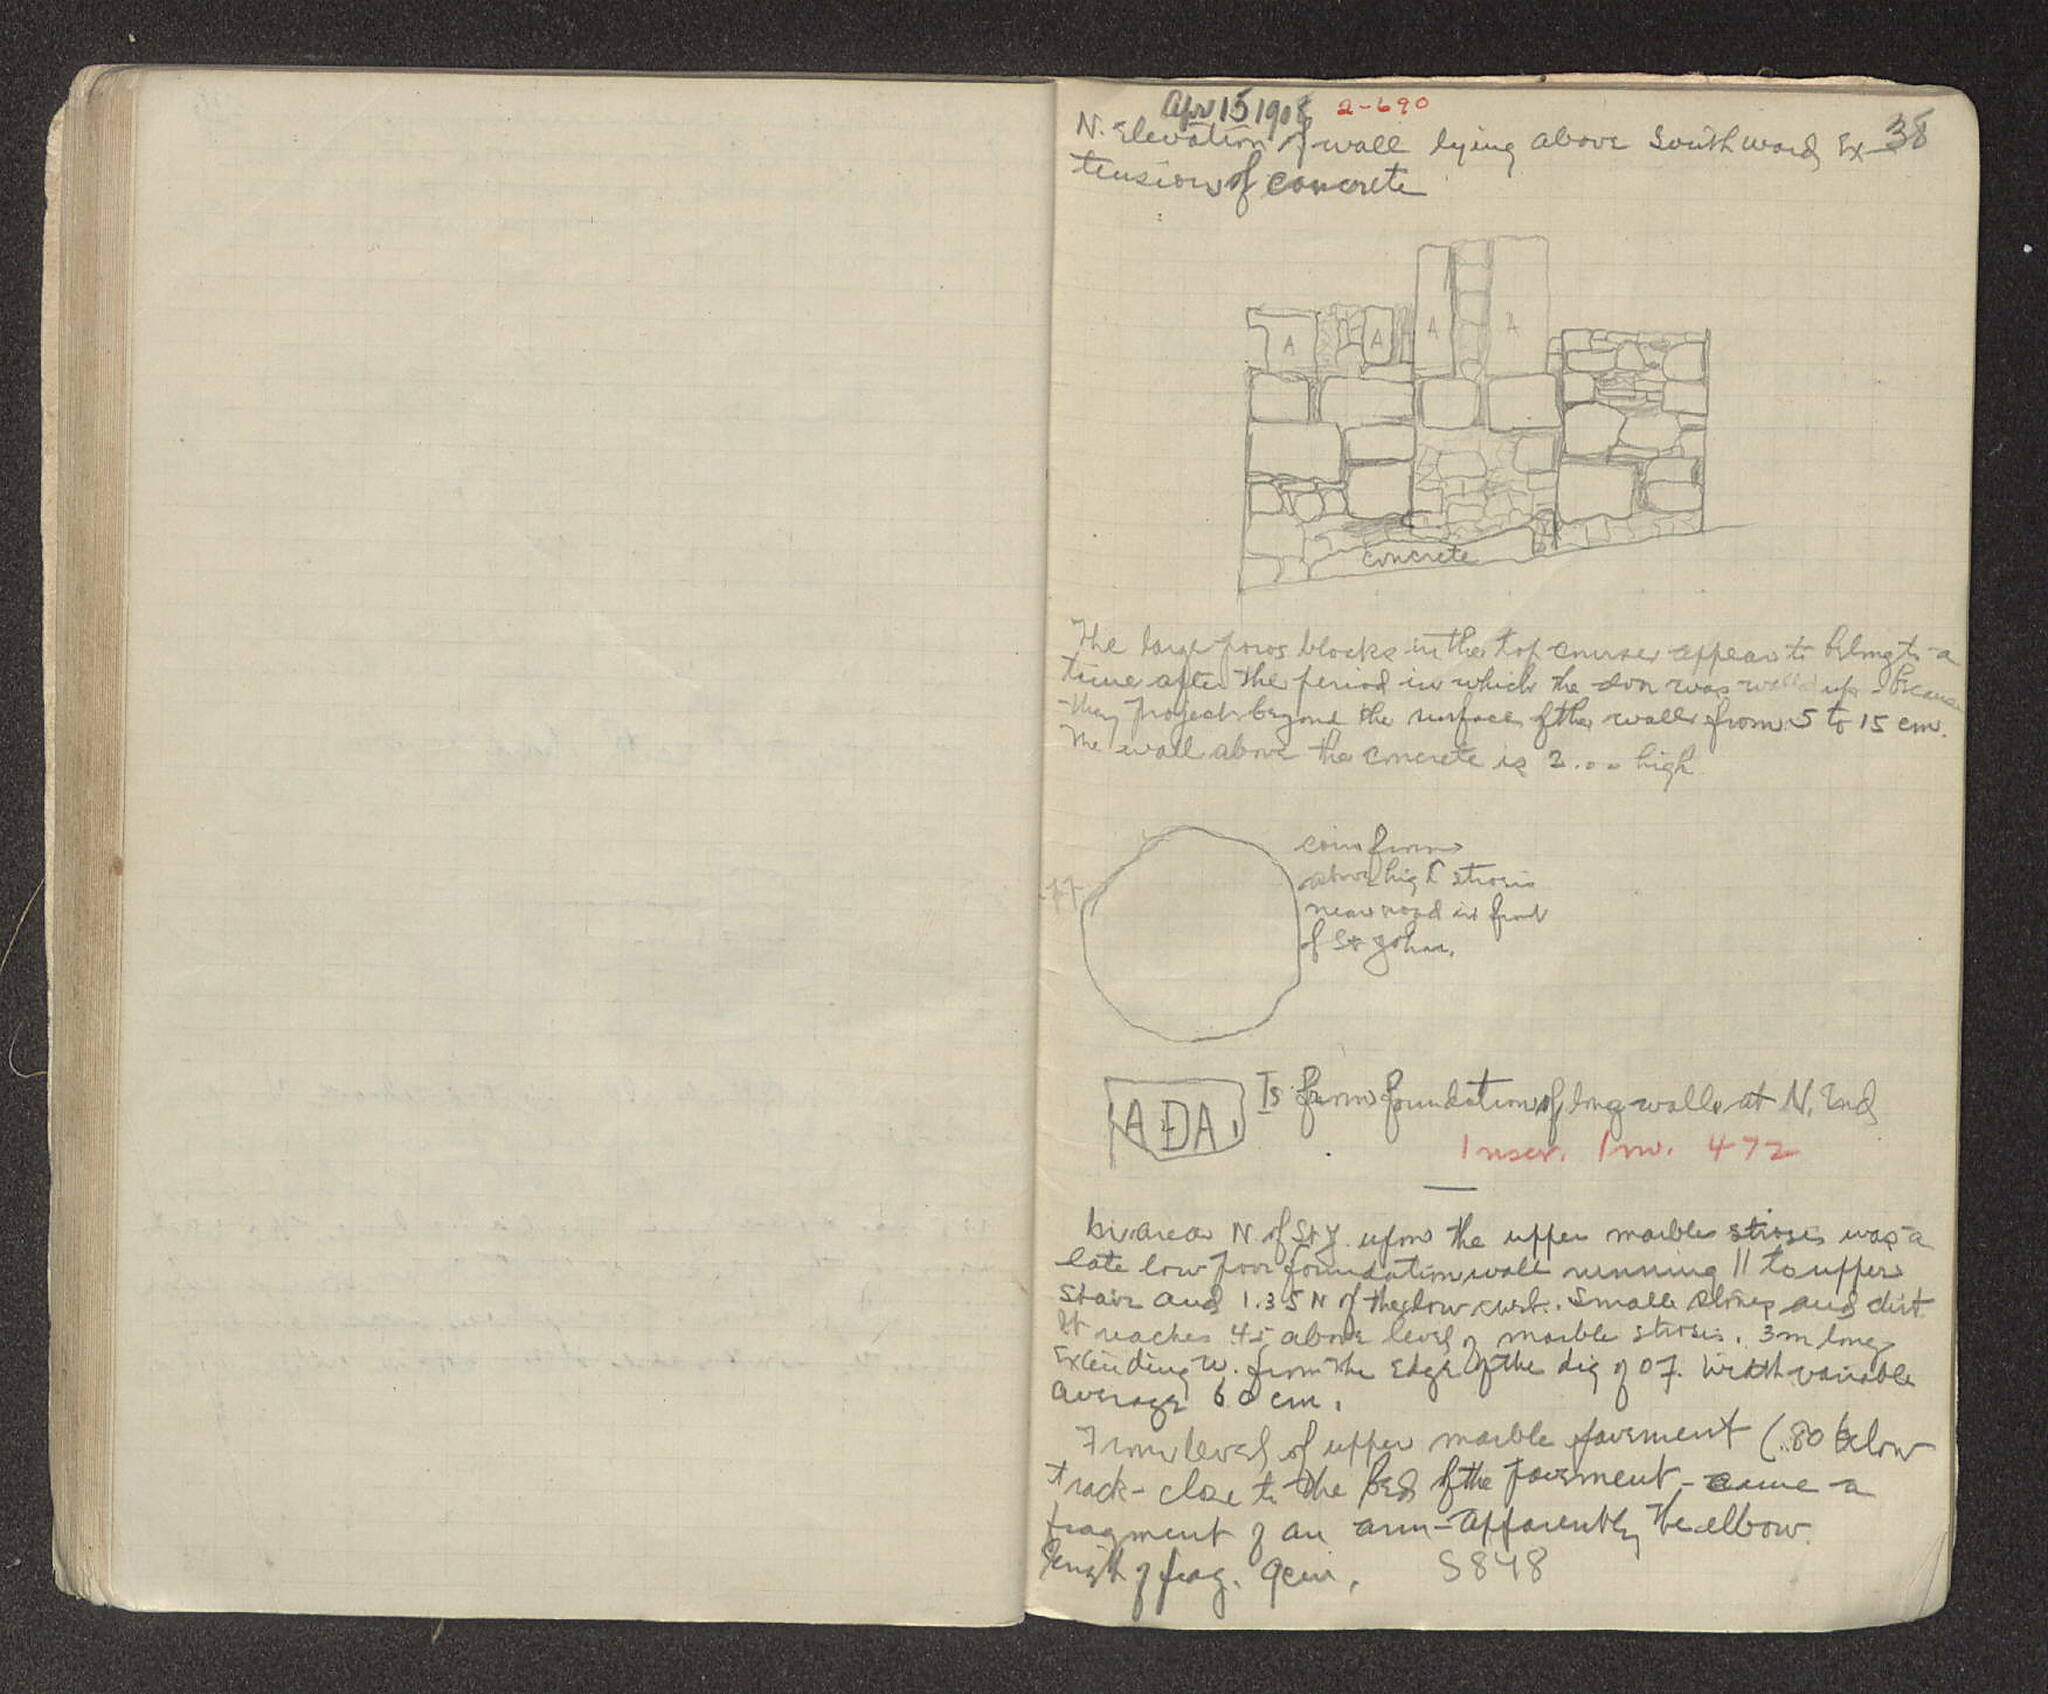 Apr 15 1908 2-690
38
N. Elevation of wall lying above Southward Ex-
tension of concrete
A A A A
concrete
The large poros blocks in the top course appear to belong to a
time after the period in which the door was walled up - because
they project beyond the surface of the wall from 5 to 15 cm.
The wall above the concrete is 2.00 high
77
coin from
above high strosis
near road in front
of St John.
AĐA
Is from foundation of long wall at N. End
Inscr. Inv. 472
In area N. of St J. upon the upper marble strosis was a
late low poor foundation wall running || to upper
stair and 1.35 N of the low curb. Small stones and dirt
It reaches 45 above level of marble strosis. 3m long
Extending W. from the edge of the dig of 07. Width variable
average 60 cm.
From level of upper marble pavement (.80 below
track - close to the bed of the pavement - came a
fragment of an arm - apparently the elbow.
length of frag. 9cm. S848